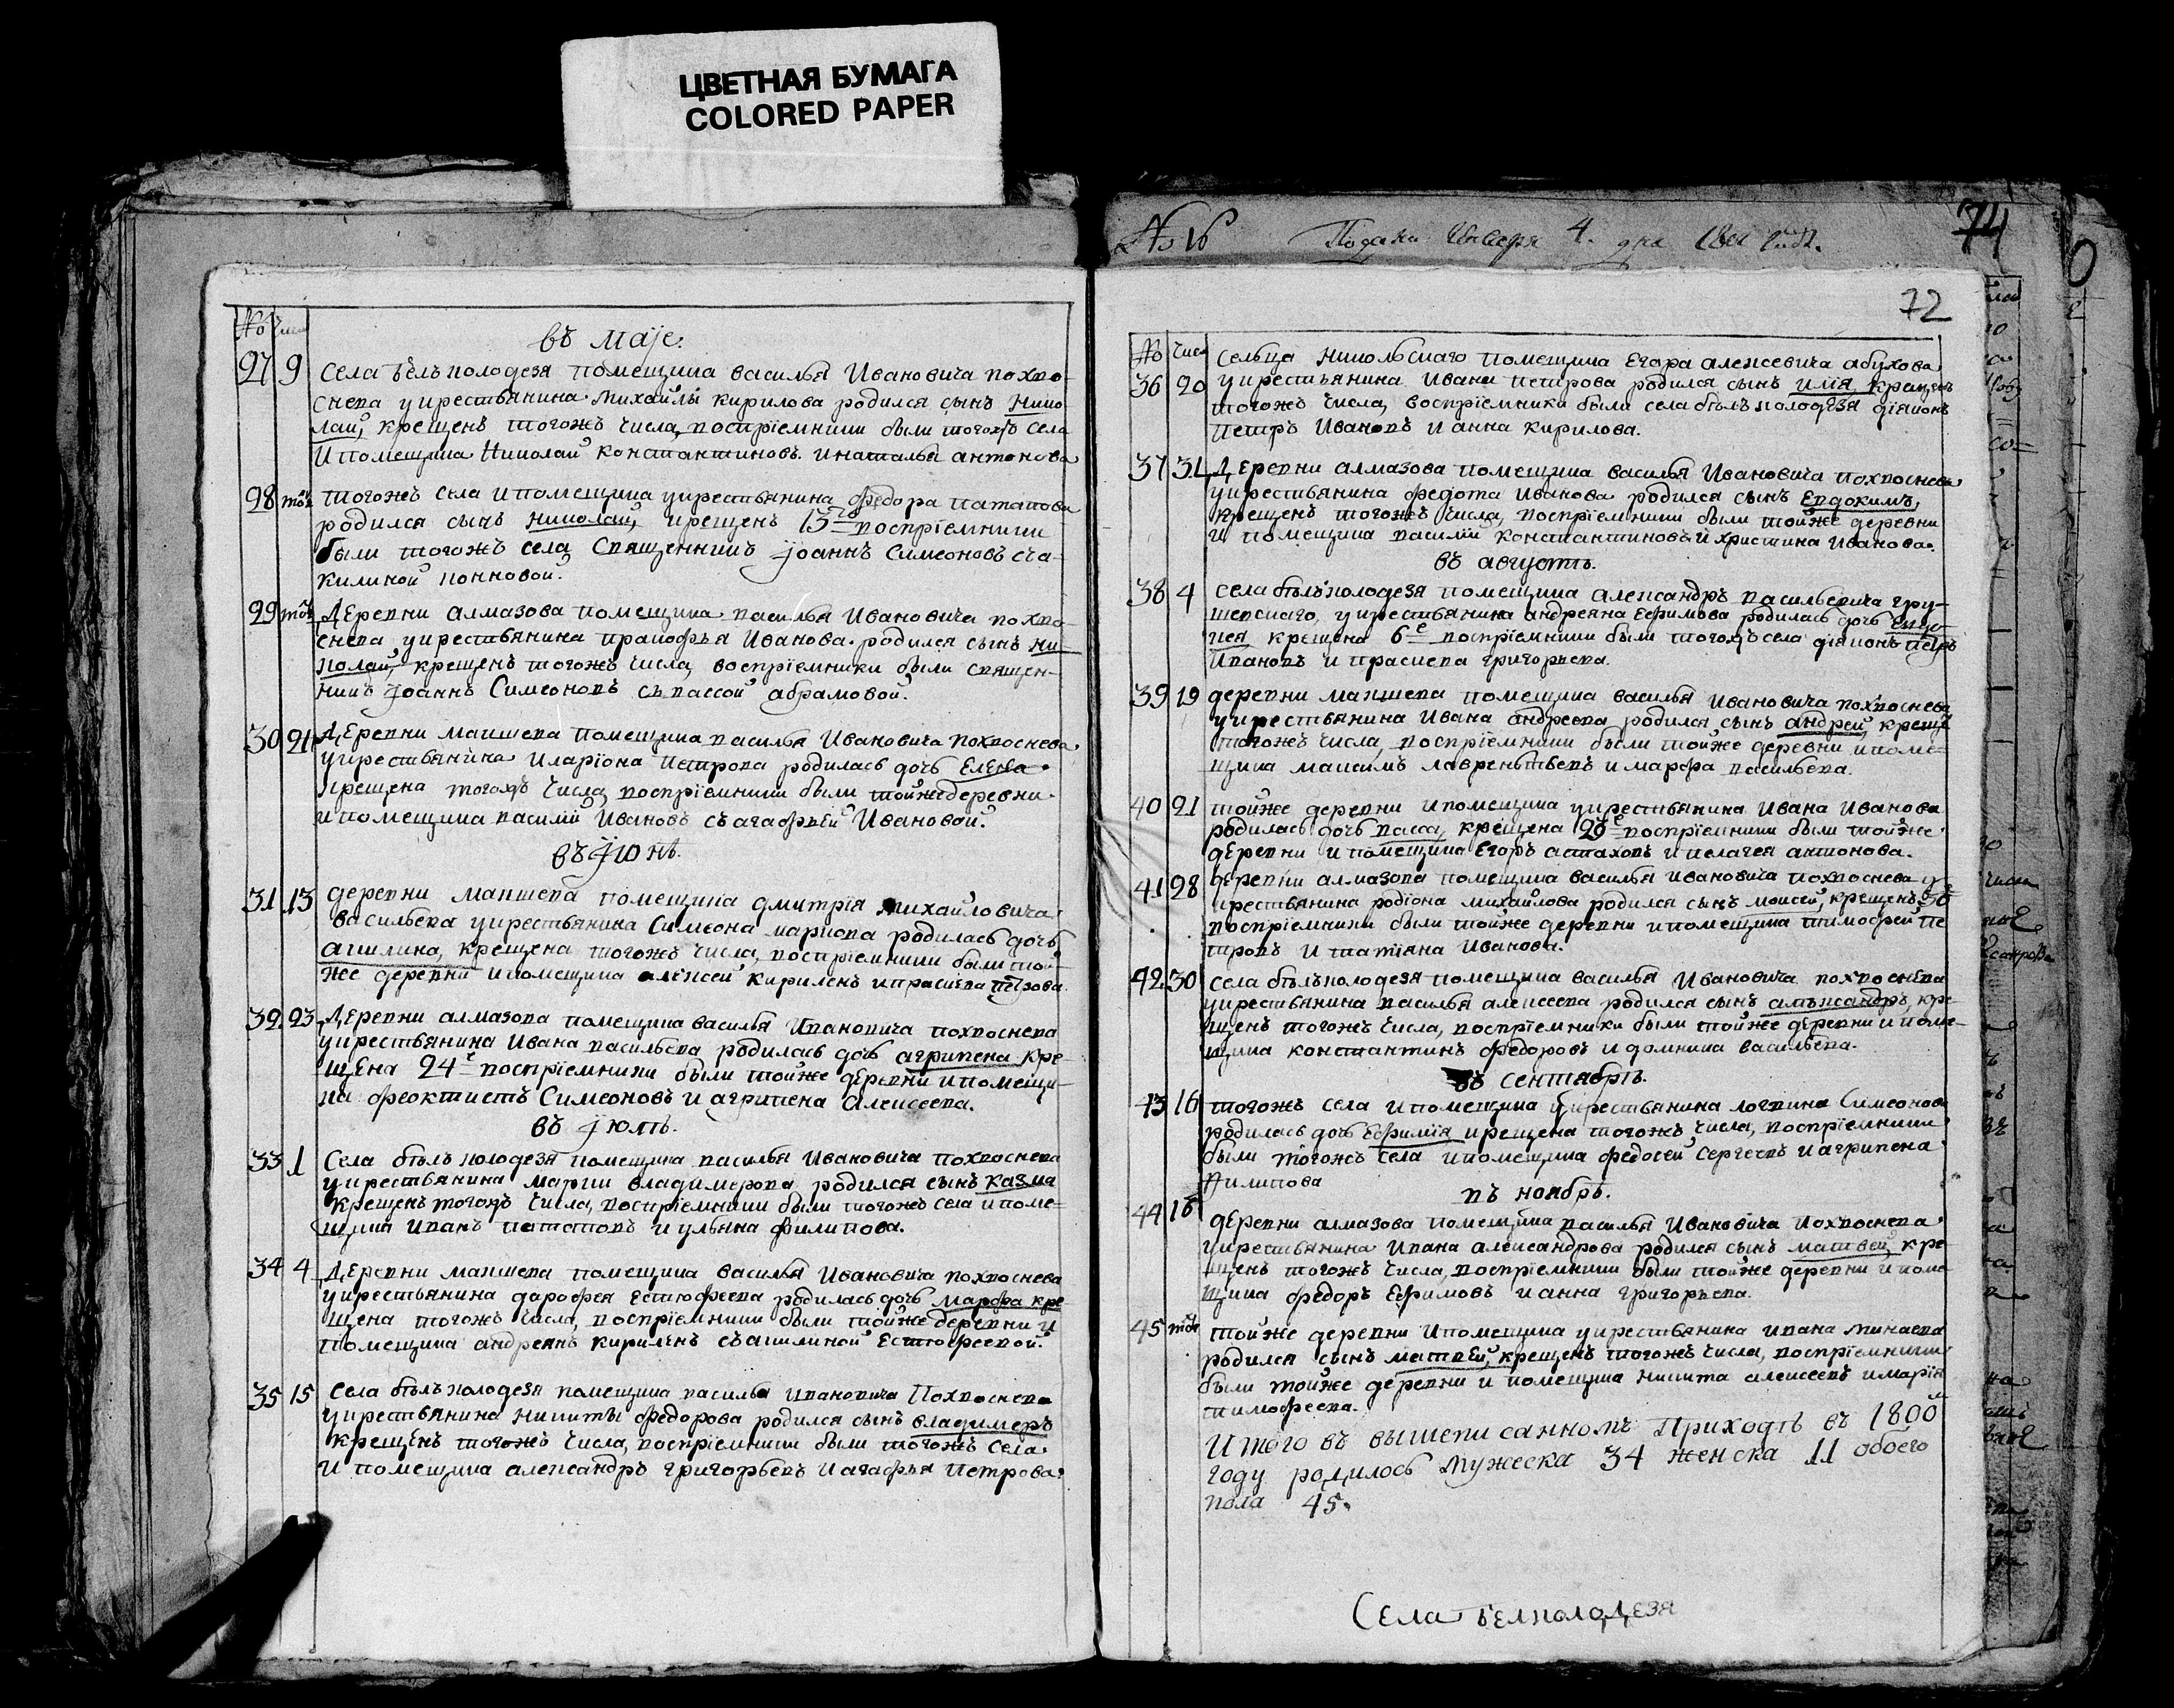 ЦВЕТНАЯ БУМАГА
COLORED PAPER
№ Числ
въ маїе.
27 9 Села Бѣлъ колодезя помещика василья Ивановича похво-
снева укрестьянина михайлы кирилова родился сынъ Нико
лай, крещенъ тогожъ числа, восприемники были тогожъ села
И помещика Николай константиновъ. и наталья антонова
28 той тогожъ села и помещика укрестьянина федора патапова
родился сынъ николай, крещенъ 13го восприемники
были тогожъ села Священникъ Їоаннъ Симеоновъ съа-
килиной поновой.
29 той Деревни алмазова помещика василья Ивановича похво-
снева укрестьянина пракофья Иванова. родился сынъ ни-
колай, крещенъ тогожъ числа, восприемники были священ-
никъ Їоаннъ Симеоновъ съ вассой абрамовой.
30 21 Деревни макшева помещика василья Ивановича похвоснева
укрестьянина Иларїона петрова родилась дочь Елена.
крещена тогожъ числа, восприемники были тойже деревни.
и помещика василий Ивановъ съ агафьей Ивановой.
въ Їюнѣ.
31 13 деревни макшева помещика дмитрїя михайловича
васильева укрестьянина Симеона маркова родилась дочь
акилина, крещена тогожъ числа, восприемники были той
же деревни и помещика алексей кириленъ и прасковя петрова.
32 23 Деревни алмазова помещика василья Ивановича похвоснева
укрестьянина Ивана васильева родилась дочь агрипена кре-
щена 24е восприемники были тойже деревни и помещи-
ка феоктистъ Симеоновъ и агрипена алексеева.
въ Їюлѣ.
33 1 Села бѣлъ колодезя помещика василья Ивановича похвоснева
укрестьянина марки владимерова родился сынъ казма
крещенъ тогожъ числа, восприемники были тогожъ села и поме-
щика Иванъ патаповъ и ульяна филипова.
34 4 Деревни макшева помещика василья Ивановича похвоснева
укрестьянина дарофея естюфеева родилась дочь марфа кре
щена тогожъ числа, восприемники были тойже деревни и
помещика андреянъ кириленъ съакилиной Естюфеевой.
35 15 Села бѣлъ колодезя помещика василья Ивановича Похвоснева
укрестьянина никиты федорова родился сынъ владимеръ
крещенъ тогожъ числа, восприемники были тогожъ села.
И помещика александръ григорьевъ и агафья петрова.
№ 16 Подана Генваря 4. дня 1801 году.
74
72
№ Числ
36 20 Сельца никольскаго помещика Егара алексевича абухова
укрестьянина Ивана петрова родился сынъ илїя, крещенъ
тогожъ числа, восприемники были села бѣлъ колодезя дїяконъ
петръ Ивановъ и анна кирилова.
37 31 Деревни алмазова помещика василья Ивановича похвоснева
укрестьянина федота Иванова родился сынъ Евдокимъ,
крещенъ тогожъ числа, восприемники были тойже деревни
и помещика василий константиновъ и христина Иванова.
въ августѣ.
38 4 Села бѣлъ колодезя помещика александръ васильевича гру-
шевскаго, укрестьянина андреяна Ефимова родилась дочь Евдо-
кея крещена 6е восприемники были тогожъ села дїяконъ петръ
Ивановъ и прасковя григорьева.
39 19 деревни макшева помещика василья Ивановича похвоснева
укрестьянина Ивана андреева родился сынъ андрей, крещенъ
тогожъ числа, восприемники были тойже деревни и поме-
щика максимъ лаврентьевъ и марфа васильева.
40 21 тойже деревни и помещика укрестьянина Ивана Иванова
родилась дочь васса, крещена 29е восприемники были тойже
деревни и помещика Егоръ астаховъ и пелагея антонова.
41 28 деревни алмазова помещика василья ивановича похвоснева у
крестьянина родїона михайлова родился сынъ моисей, крещенъ 30
восприемники были тойже деревни и помещика тимофей пе
тровъ и татїяна Иванова.
42 30 Села бѣлъ колодезя помещика василья Ивановича похвоснева
укрестьянина василья алексеева родился сынъ алѣксандръ, кре
щенъ тогожъ числа, восприемники были тойже деревни и поме-
щика константинъ федоровъ и домника васильева.
въ сентябрѣ.
43 16 тогожъ села и помещика укрестьянина логвина Симеонова
родилась дочь Ефимїя крещена тогожъ числа, восприемники
были тогожъ села и помещика федосей Сергеевъ и агрипена
Филипова
въ ноябрѣ.
44 16 деревни алмазова помещика василья Ивановича Похвоснева.
укрестьянина Ивана александрова родился сынъ матвей, кре
щенъ тогожъ числа, восприемники были тойже деревни и поме
щика федоръ Ефимовъ и анна григорьева.
45 той тойже деревни и помещика укрестьянина ивана минаева
родился сынъ матвей, крещенъ тогожъ числа, восприемники
были тойже деревни и помещика никита алексеевъ и марїя
тимофеева.
Итого въ вышеписанномъ Приходѣ въ 1800й
году родилось мужеска 34 женска 11 обоего
пола 45.
Села Белколодезя